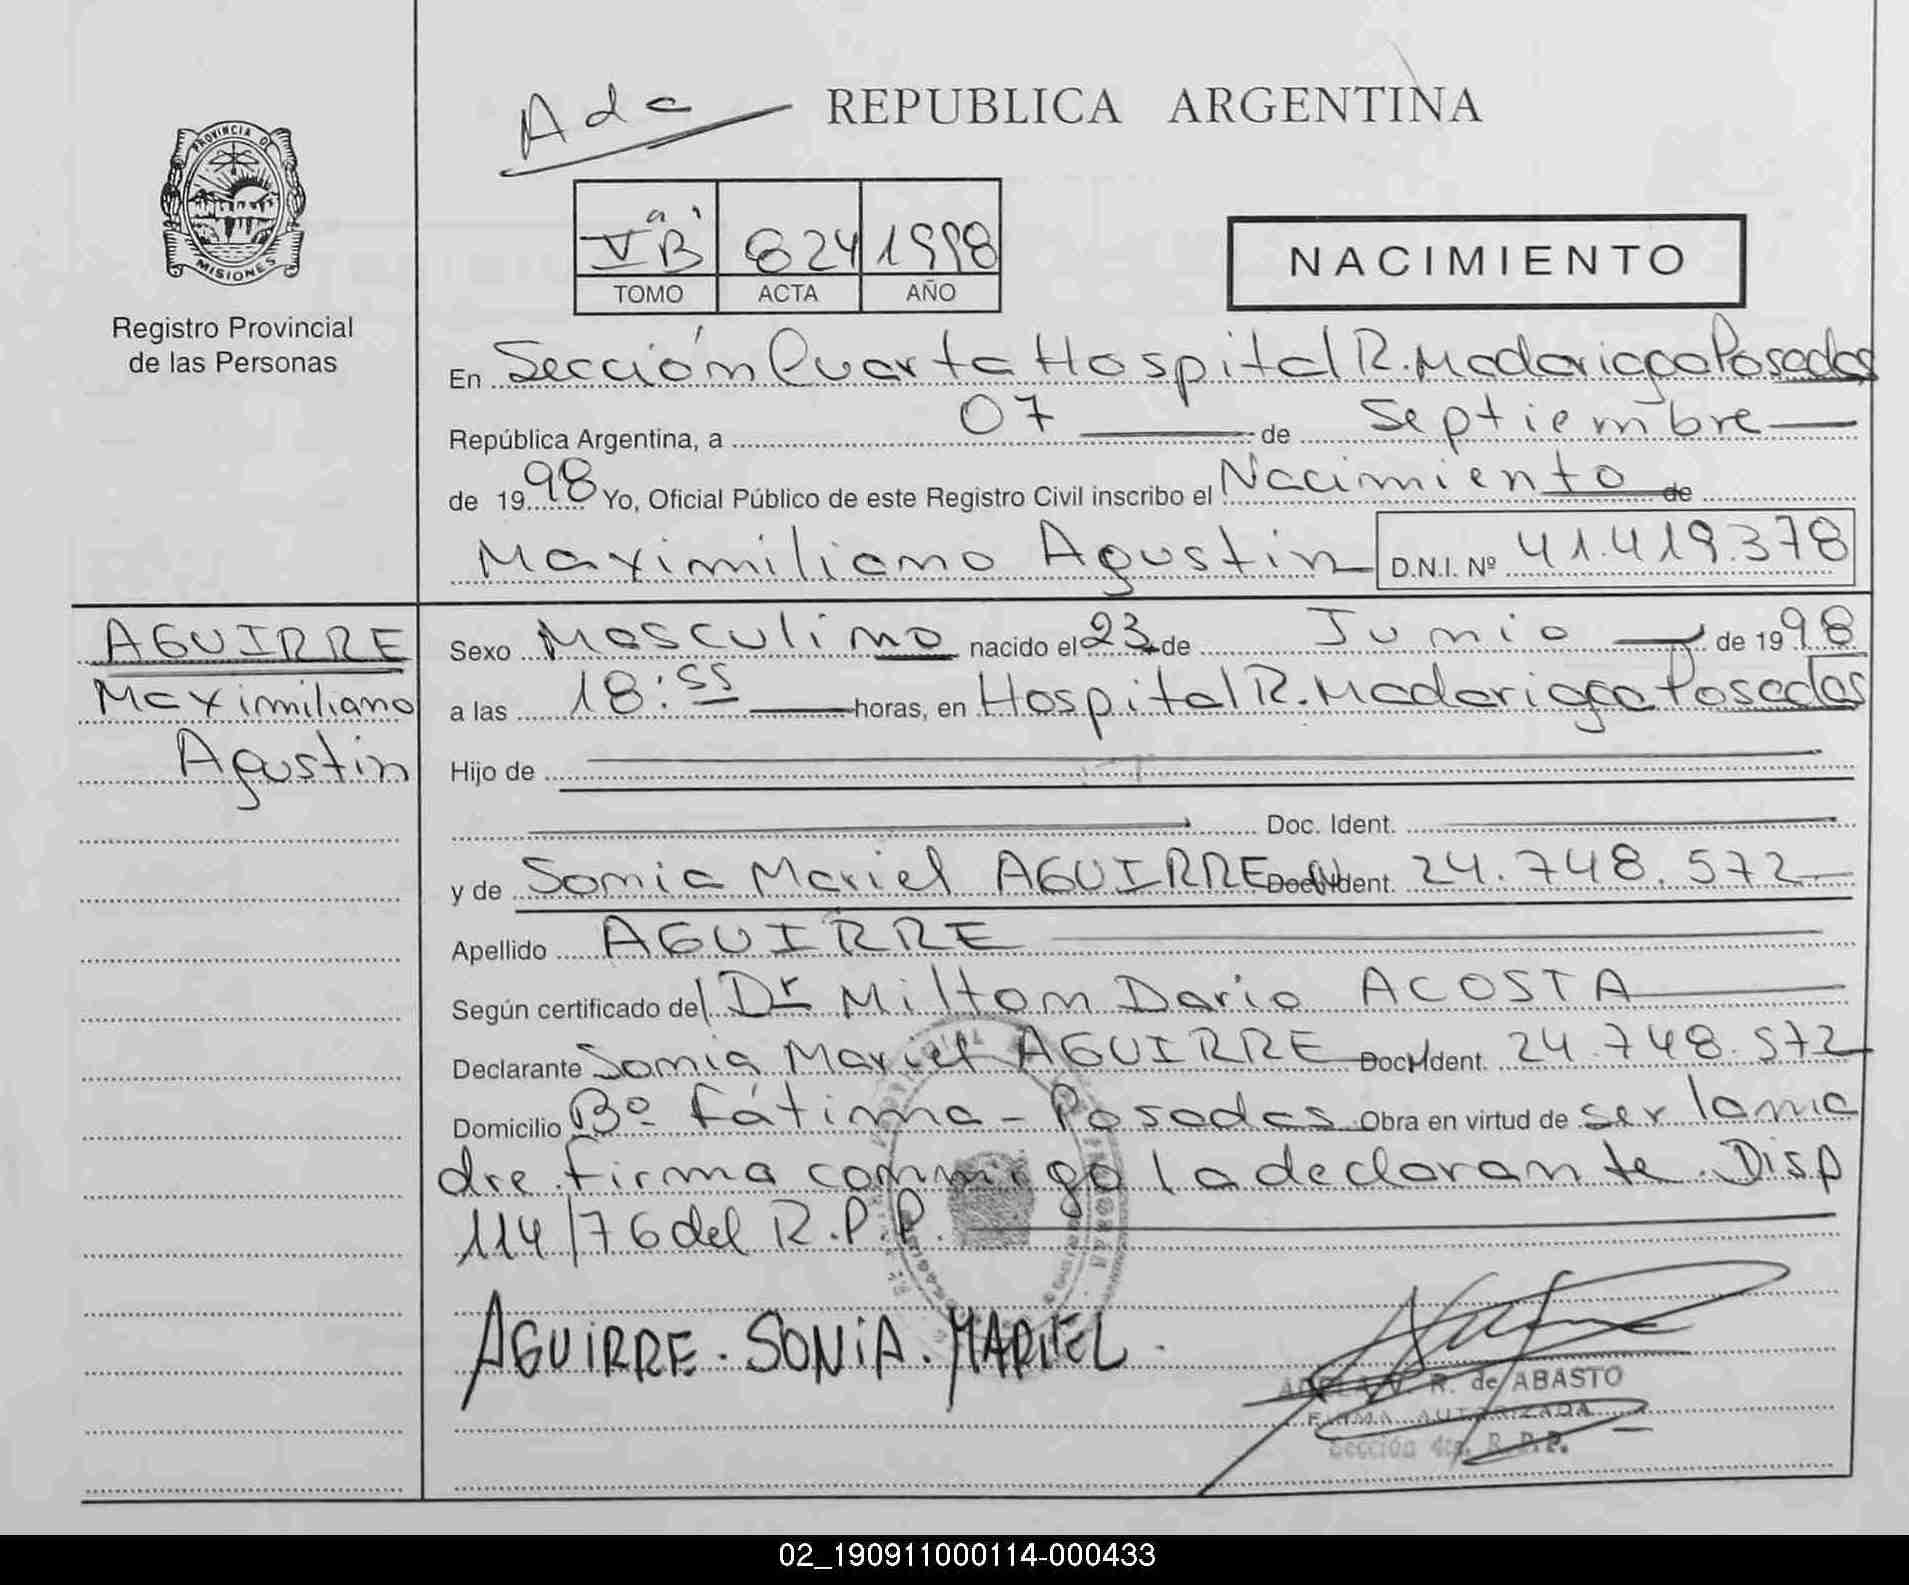 Ada
REPUBLICA ARGENTINA
PROVINCIA D
MISIONES
Registro Provincial
de las Personas
Vª B 824 1998
TOMO ACTA AÑO
NACIMIENTO
En Sección Cuarta Hospital R. Madariaga Posadas
República Argentina, a 07 de Septiembre
de 1998 Yo, Oficial Público de este Registro Civil inscribo el Nacimiento de
Maximiliano Agustin D.N.I. Nº 41.419.378
AGUIRRE
Maximiliano
Agustin
Sexo Masculino nacido el 23 de Junio de 1998
a las 18:55 horas, en Hospital R. Madariaga Posadas
Hijo de
Doc. Ident.
y de Sonia Mariel AGUIRRE Doc. Ident. 24.748.572
Apellido AGUIRRE
Según certificado del Dr Milton Dario ACOSTA
Declarante Sonia Mariel AGUIRRE Doc. Ident. 24.748.572
Domicilio Bº Fátima - Posadas Obra en virtud de ser la ma
dre firma conmigo la declarante. Disp
114/76 del R.P.P.
AGUIRRE. SONIA. MARIEL.
R. de ABASTO
FIRMA AUTORIZADA
Sección 4ta. R.P.P.
02_190911000114-000433